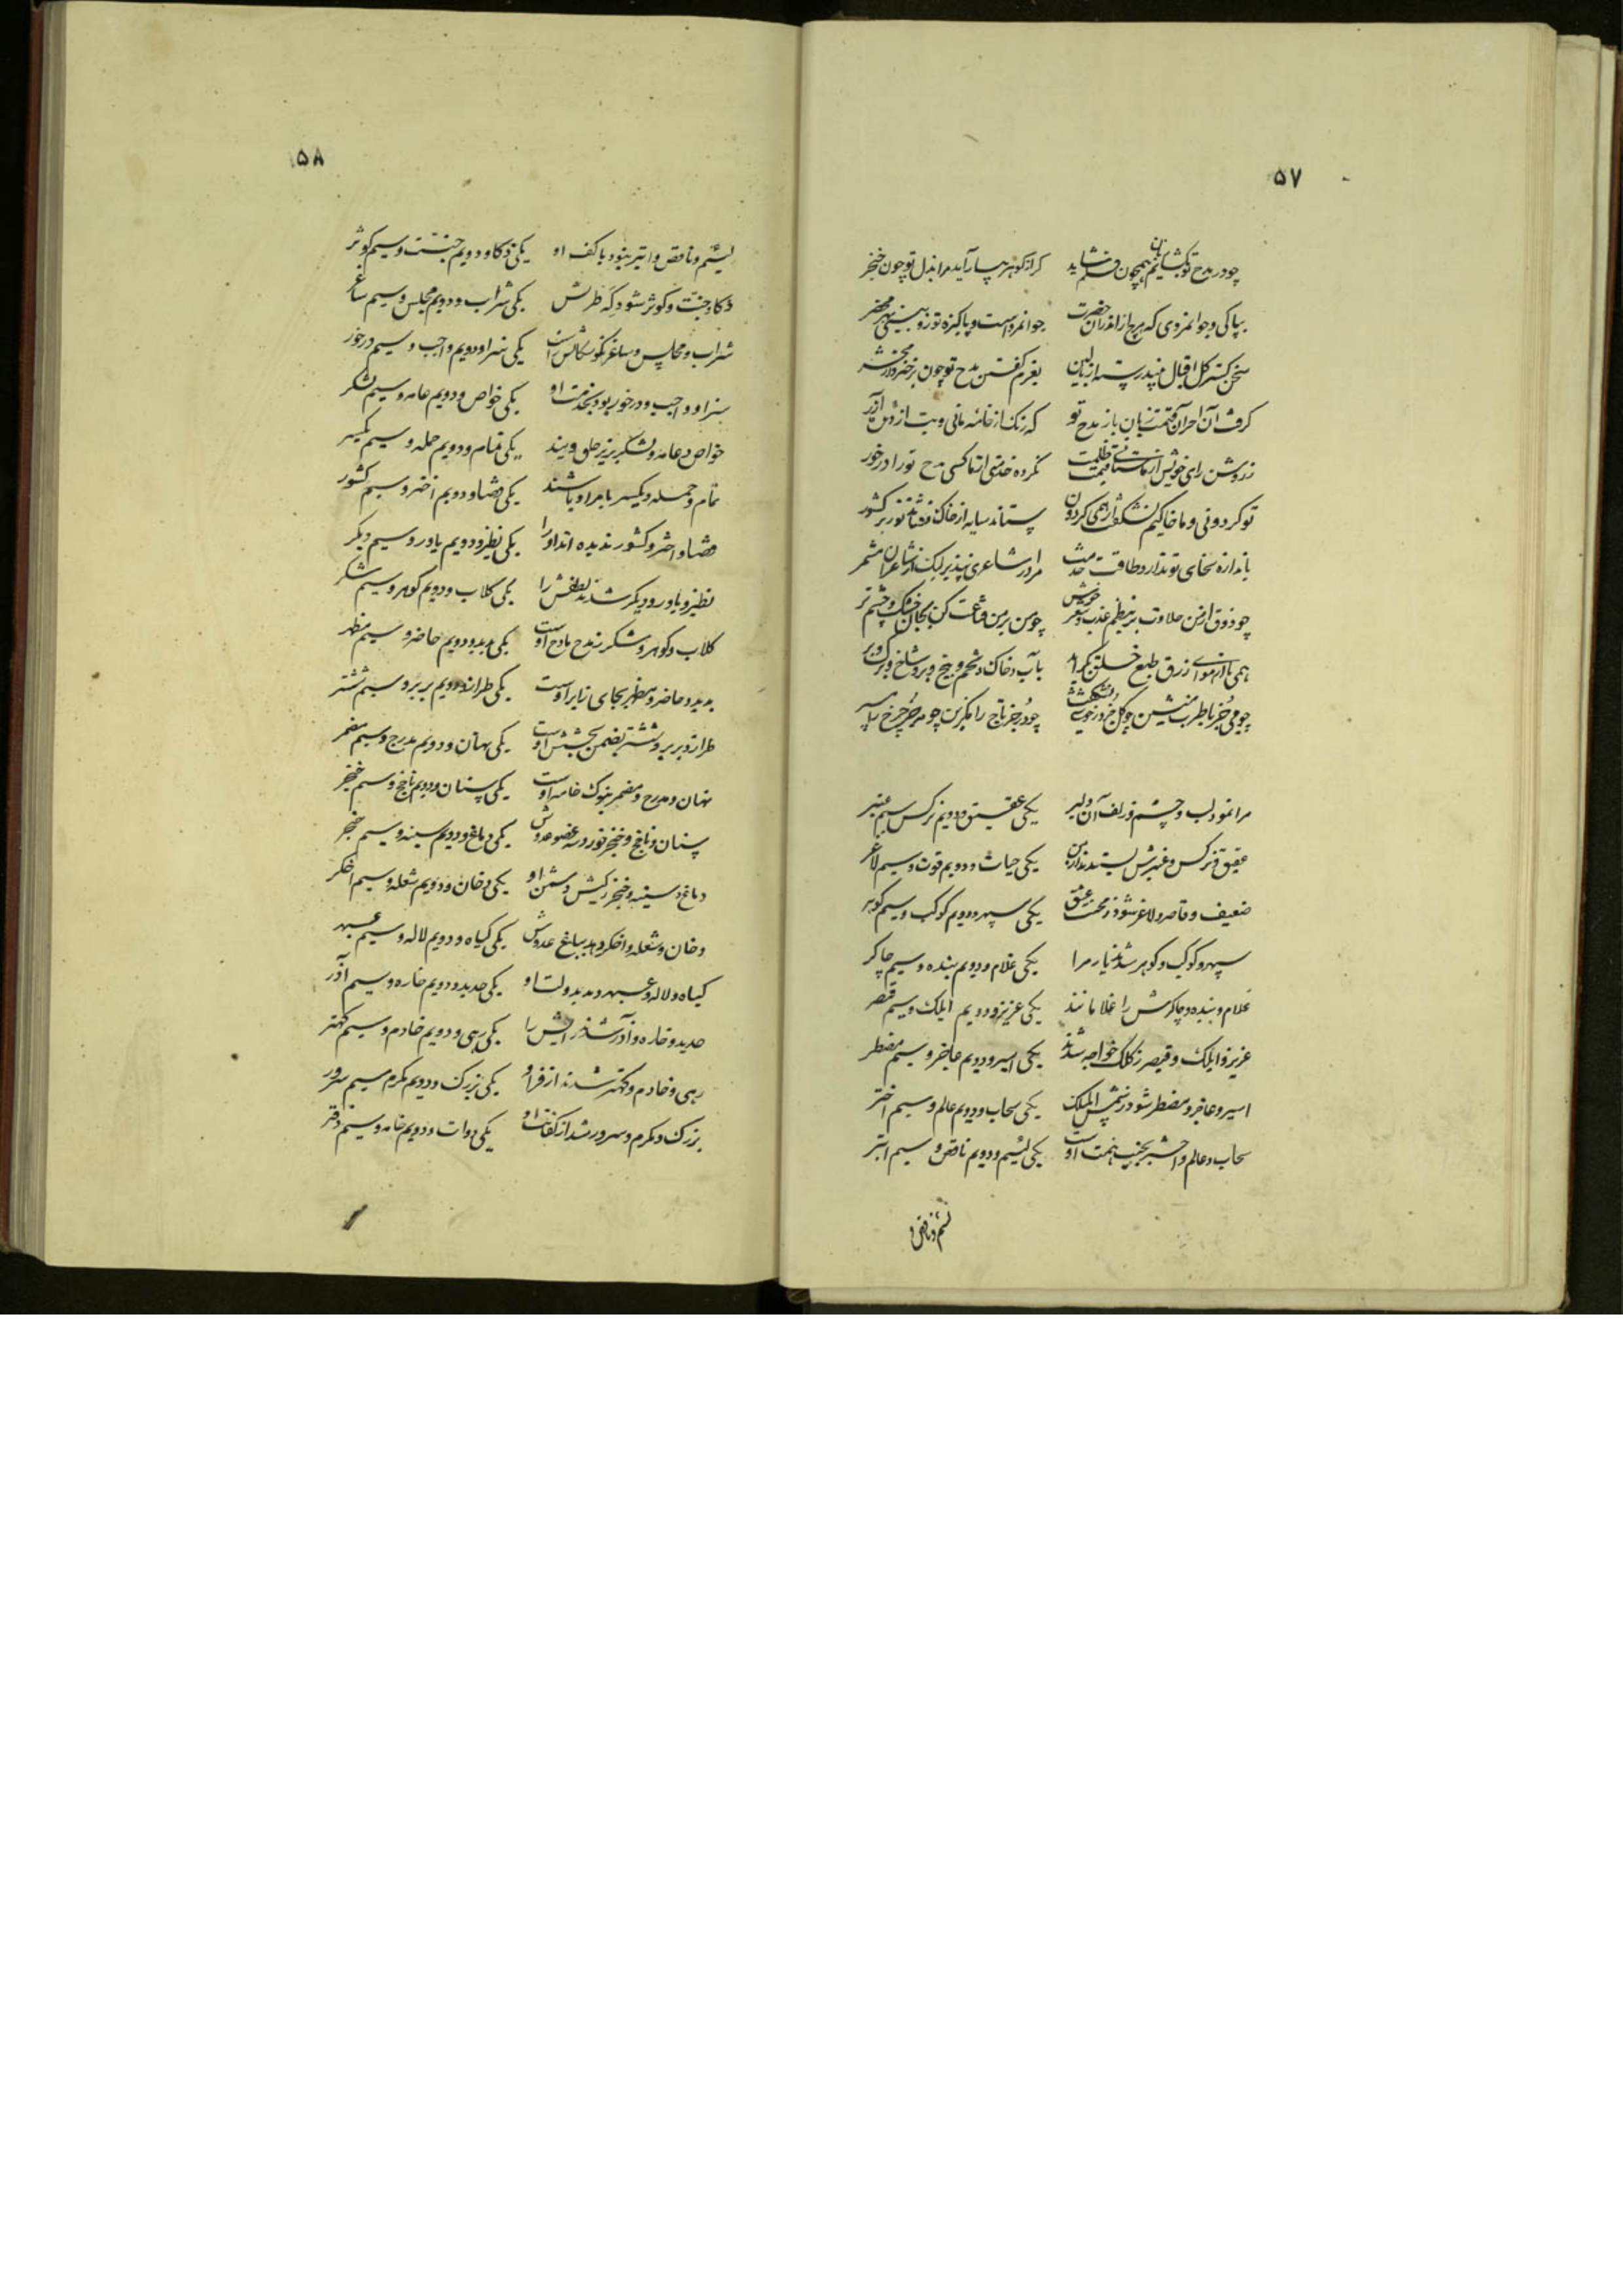 ۵۷
چو در مدح تو بگشایم همچون نشاید کز گوهر بیاراید مرا بذل تو چون خنجر
بپاکی و جوانمردی که هرچ از اندران حضرت جوانمرد است و پاکیزه تو زو بینی محضر
سخن گستر اقبال بعزم گفتن مدح تو چون بر خیزد
گرفت آن زبان باز مدح تو که رنگ از خانه مانی و بت از آزر
ز روشن رای خویش از نکرده خدمتی از ما کسی مدح تو را درخور
تو گردونی و ما خاکیم نشگفت ار همی گردون ستاند سایه از خاک نور بر کشور
باندازه سخای تو ندارد طاقت خدمت مرا در شاعری بپذیر لیک از شاعران مشمر
چو ذوق از من حلاوت بر بنظم عذب و شعر خوش چو من بر من قناعت کن بکان خشک و چشم تر
همی تا از هوای زرق طبع بآب و خاک و تخم و بیخ و برو شاخ و برگ و بر
چو می جز با طرب منشین چو گل جز چو در جز تاج را مگزین چو مه جز چرخ را مسپر
مرا نمود لب و چشم و زلف آن دلبر یکی عقیق و دویم نرگس و سیم عنبر
عقیق و نرگس و عنبرش بستدند از من یکی حیات و دویم قوت و سیم لاغر
ضعیف و قاصر و لاغر شود ز محنت عشق یکی سپهر و دویم کوکب و سیم گوهر
سپهر و کوکب و گوهر شدند یار مرا یکی غلام و دویم بنده و سیم چاکر
غلام و بنده و چاکرش را غلامانند یکی عزیز و دویم ایلک و سیم قیصر
عزیز و ایلک و قیصر ز کلک خواجه شدند یکی اسیر و دویم عاجز و سیم مضطر
اسیر و عاجز و مضطر شود ز شمس الملک یکی سحاب و دویم عالم و سیم اختر
سحاب و عالم و اختر بجنب همت اوست یکی لئیم و دویم ناقص و سیم ابتر
لئیم و ناقص و
۵۸
لئیم و ناقص و ابتر بنزد با کف او یکی ذکا و دویم جنت و سیم کوثر
ذکا و جنت و کوثر شود گه طربش یکی شراب و دویم مجلس و سیم ساغر
شراب و مجلس و ساغر نکو سگالش راست یکی سزا و دویم واجب و سیم درخور
سزا و واجب و درخور بود بخدمت او یکی خواص و دویم عامه و سیم لشکر
خواص و عامه و لشکر بزیر حلق ویند یکی تمام و دویم جمله و سیم یکسر
تمام و جمله و یکسر بامر او باشند یکی قضا و دویم اختر و سیم کشور
قضا و اختر و کشور ندیده‌اند او را یکی نظیر و دویم یاور و سیم دیگر
نظیر و یاور و دیگر شدند لفظش را یکی گلاب و دویم گوهر و سیم شکر
گلاب و گوهر و شکر ز مدح مادح اوست یکی پدید و دویم حاضر و سیم مظهر
پدید و حاضر و مظهر بجای زایر اوست یکی طراز و دویم بربر و سیم ششتر
طراز و بربر و ششتر بضمن بخشش اوست یکی نهان و دویم مدرج و سیم مضمر
نهان و مدرج و مضمر بنوک خامه اوست یکی سنان و دویم ناچخ و سیم خنجر
سنان و ناچخ و خنجر خورد سه عضو عدوش یکی دماغ و دویم سینه و سیم حنجر
دماغ و سینه و حنجر ز کینش دشمن او یکی دخان و دویم شعله و سیم اخگر
دخان و شعله و اخگر دهد بباغ عدوش یکی گیاه و دویم لاله و سیم عبهر
گیاه و لاله و عبهر دمد بدولت او یکی حدید و دویم خاره و سیم آذر
حدید و خاره و آذر شدند رایش را یکی رهی و دویم خادم و سیم کهتر
رهی و خادم و کهتر شدند از فر او یکی بزرگ و دویم مکرم و سیم سرور
بزرگ و مکرم و سرور شد از کفایت او یکی دوات و دویم خامه و سیم دفتر